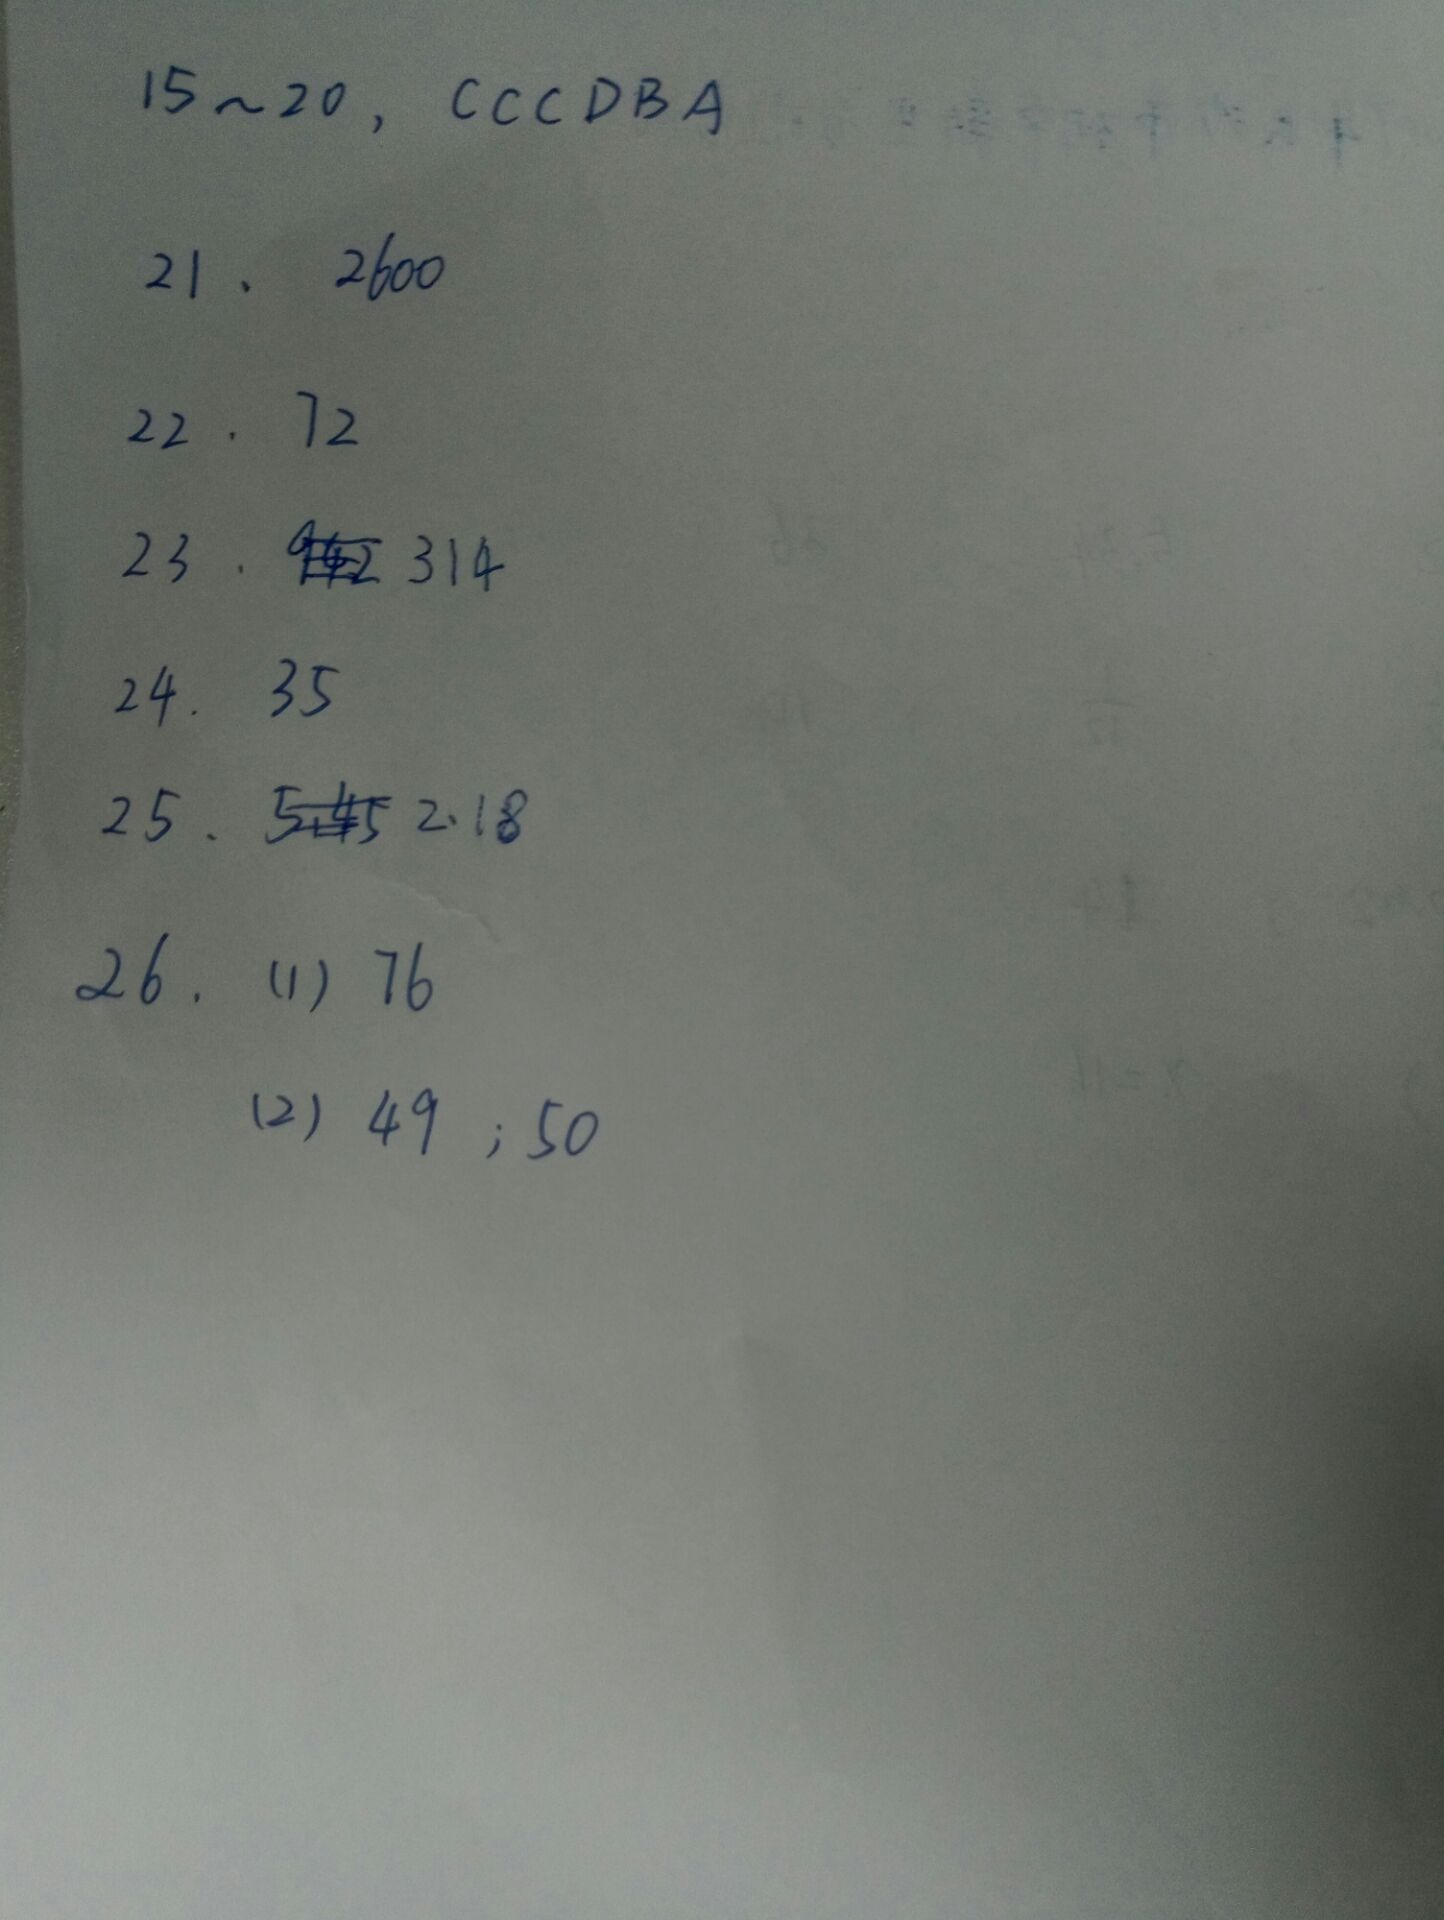 15~20, CCCDBA
21. 2600
22. 72
23. 314
24. 35
25. 2.18
26. (1) 76
(2) 49 ; 50